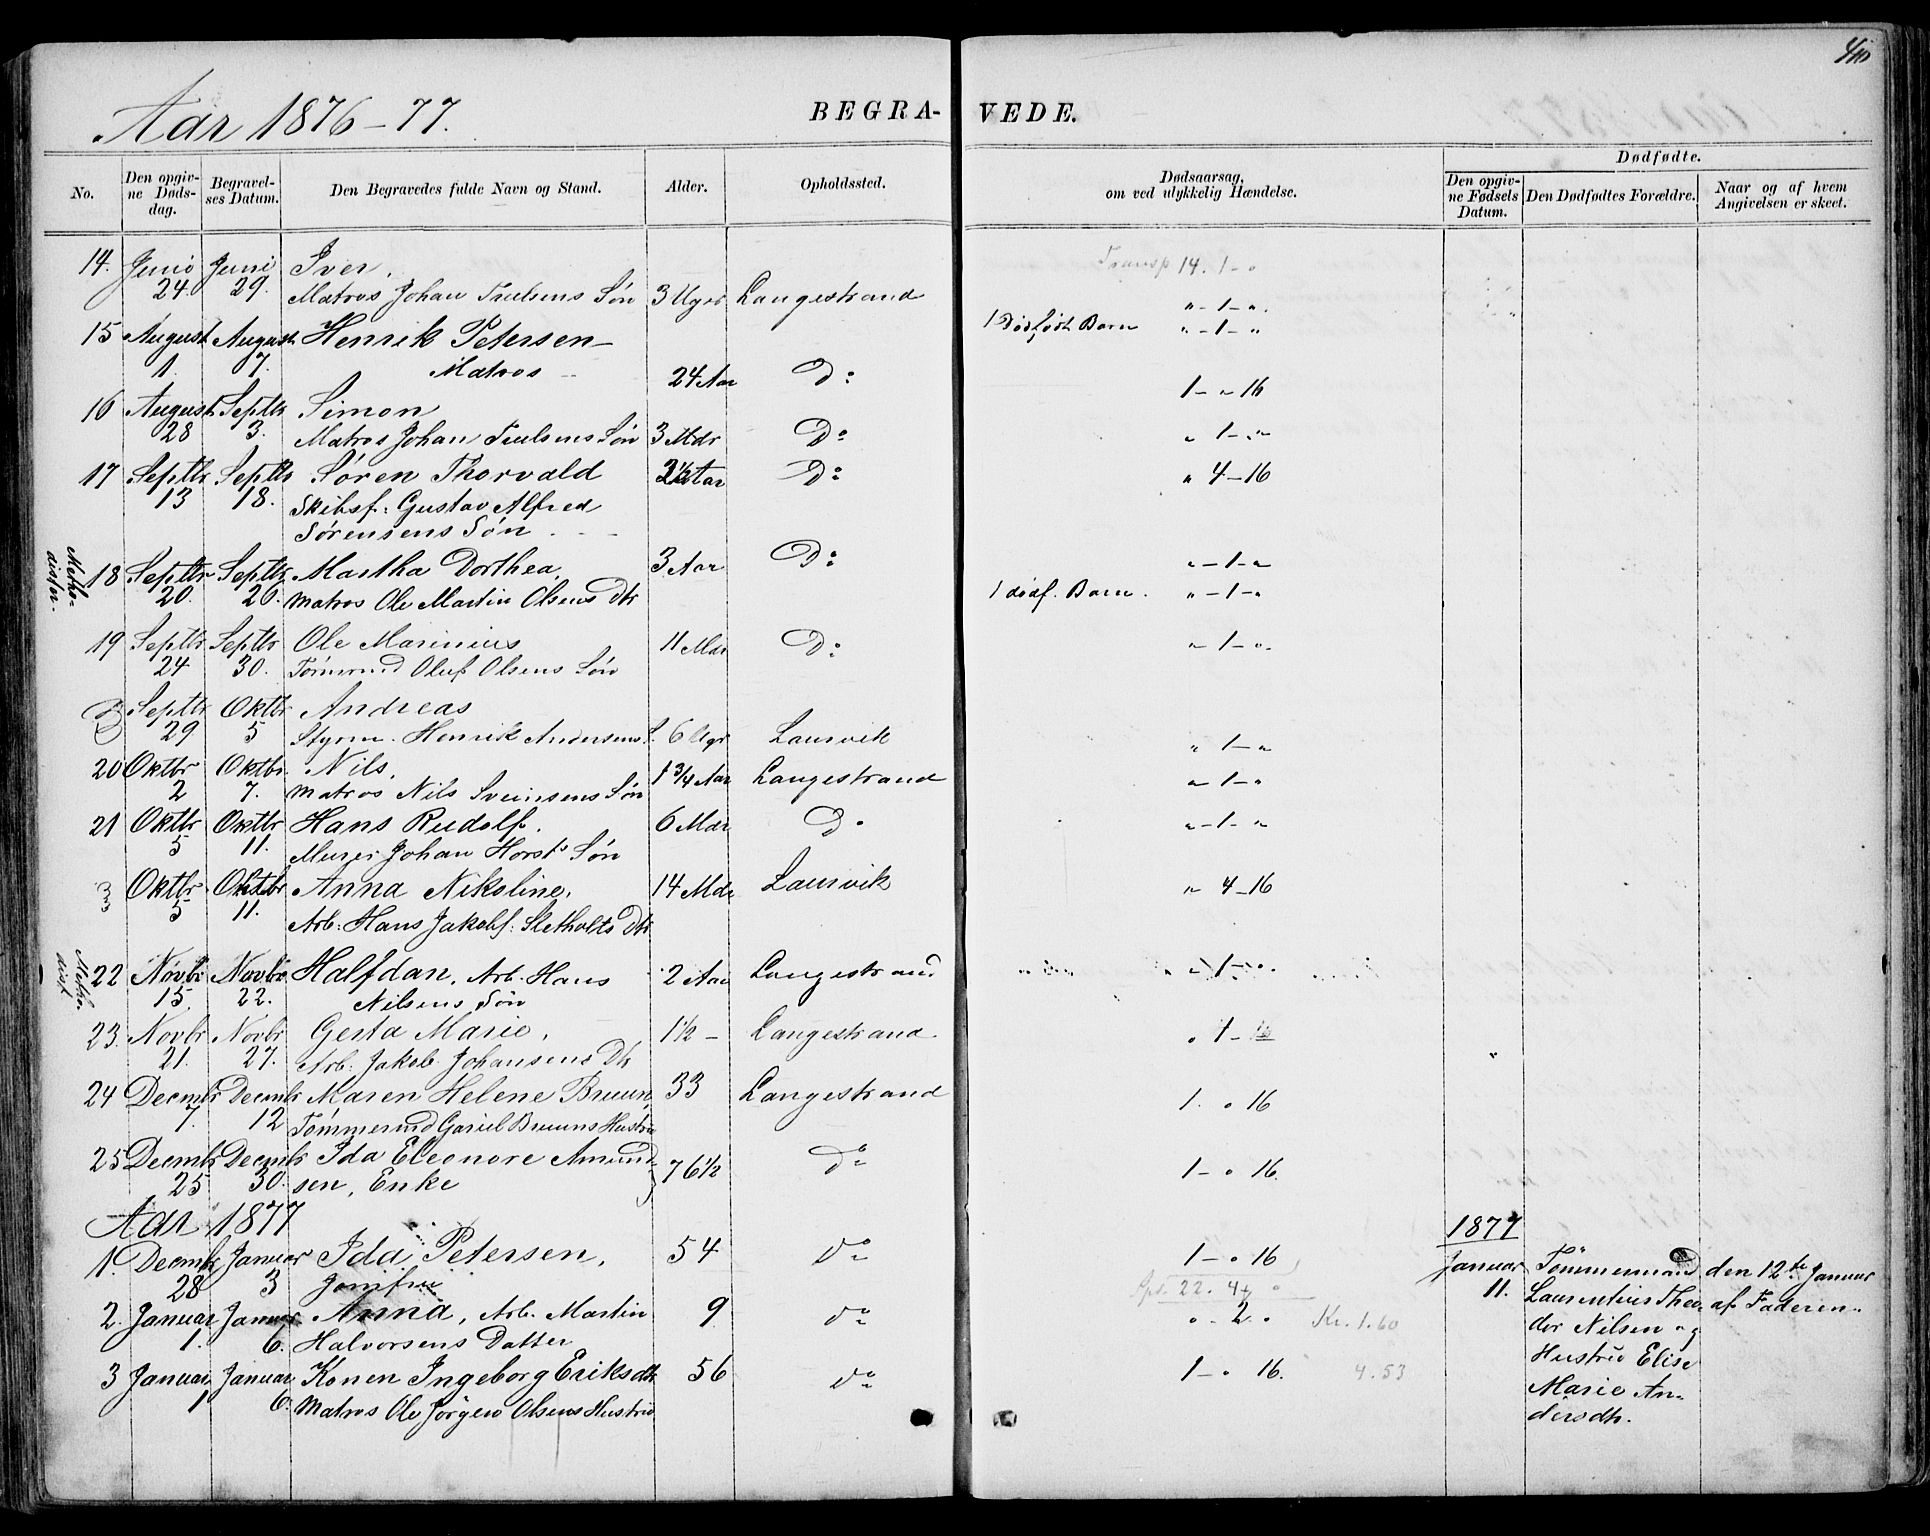 Aar 1876-77.
BEGRA-VEDE.
No.
Den opgivne Dødsdag.
Begravelses Datum.
Den Begravedes fulde Navn og Stand.
Alder.
Opholdssted.
Dødsaarsag, om ved ulykkelig Hændelse.
Dødfødte.
Den opgivne Fødsels Datum.
Den Dødfødtes Forældre.
Naar og af hvem Angivelsen er skeet.
14. Juni Juni Iver, Transp 14. 1-"
24. 29. Matros Johan Truelsens Søn 3 Uger Langestrand "-1-".
15 August August Henrik Petersen 1 Dødfødt Barn "-1-"
1. 7. Matros 24 Aar Do 1-"16
16 August Septbr Simon
28 3. Matros Johan Truelsens Søn 3 Mdr Do " 1-"
17 Septbr Septbr Søren Thorvald Aar Do " 4-16
13 18. Skibsf: Gustav Alfred
Sørensens Søn
Methodister.
18 Septbr Septbr Martha Dorthea, 3 Aar Do "-1-"
20. 26. Matros Ole Martin Olsens Dtr 1 dødf. Barn. "-1-"
19 Septbr Septbr Ole Marinius 11 Mdr Do "-1-".
24 30. Tømmrmd Oluf Olsens Søn
Septbr Oktbr Andreas
29 5 Styrm. Henrik Andersens S. 6 Ugr Laurvik " 1-"
20 Oktbr Oktbr. Nils, 1 3/4 Aar Langestrand "-1-"
2 7. Matros Nils Svensens Søn
21 Oktbr Oktbr Hans Rudolf. 6 Mdr Do "-1-"
5 11. Murer Johan Horst's Søn
Oktbr Oktbr Anna Nikoline, 14 Mdr Laurvik " 4-16
5 11. Arb: Hans Jakobs: Sletholts Dtr
Methodist
22 Novbr Novbr Halfdan, Arb. Hans 2 Aar Langestrand "-1-"
15. 22. Nilsens Søn
23. Novbr Novbr Gerta Marie, 1½ - Langestrand. " 1-16
21. 27. Arb. Jakob Johansens Dtr
24 Decmbr Decmbr Maren Helene Bruun, 33 Langestrand 1. " 16
7. 12 Tømmermd Gariel Bruuns Hustru
25 Decmbr Decmbr Ida Eleonore Amund- 76½ Do 1-" 16.
25 30. sen, Enke
Aar 1877
1877
1. Decmbr Januar Ida Petersen, 54 Do 1-" 16
28 3 Jomfru
22. 4
2. Januar Januar Anna, Arb. Martin 9 Do "-2" Kr. 1.60
1. 6. Halvorsens Datter
3 Januar Januar Konen Ingeborg Eriksdtr 56 Do 1-" 16. 4.53
1 6. Matros Ole Jørgen Olsens Hustru
Januar
11.
Tømmermand
Laurentius Theo-
dor Nilsen og
Hustru Elise
Marie An-
dersdtr.
den 12te Januar
af Faderen.